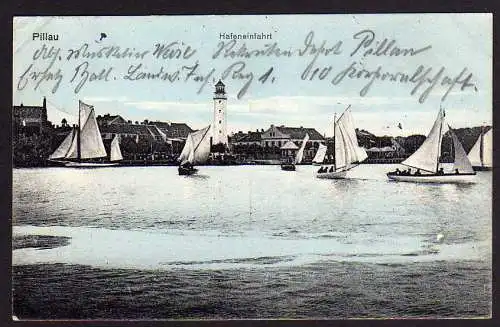 Pillau
Hafeneinfahrt
Abs. Musketier Wexie, Rekruten Depot Pillau
Ersatz Batl. Landw. Inf. Reg 1, 10 Korporalschaft